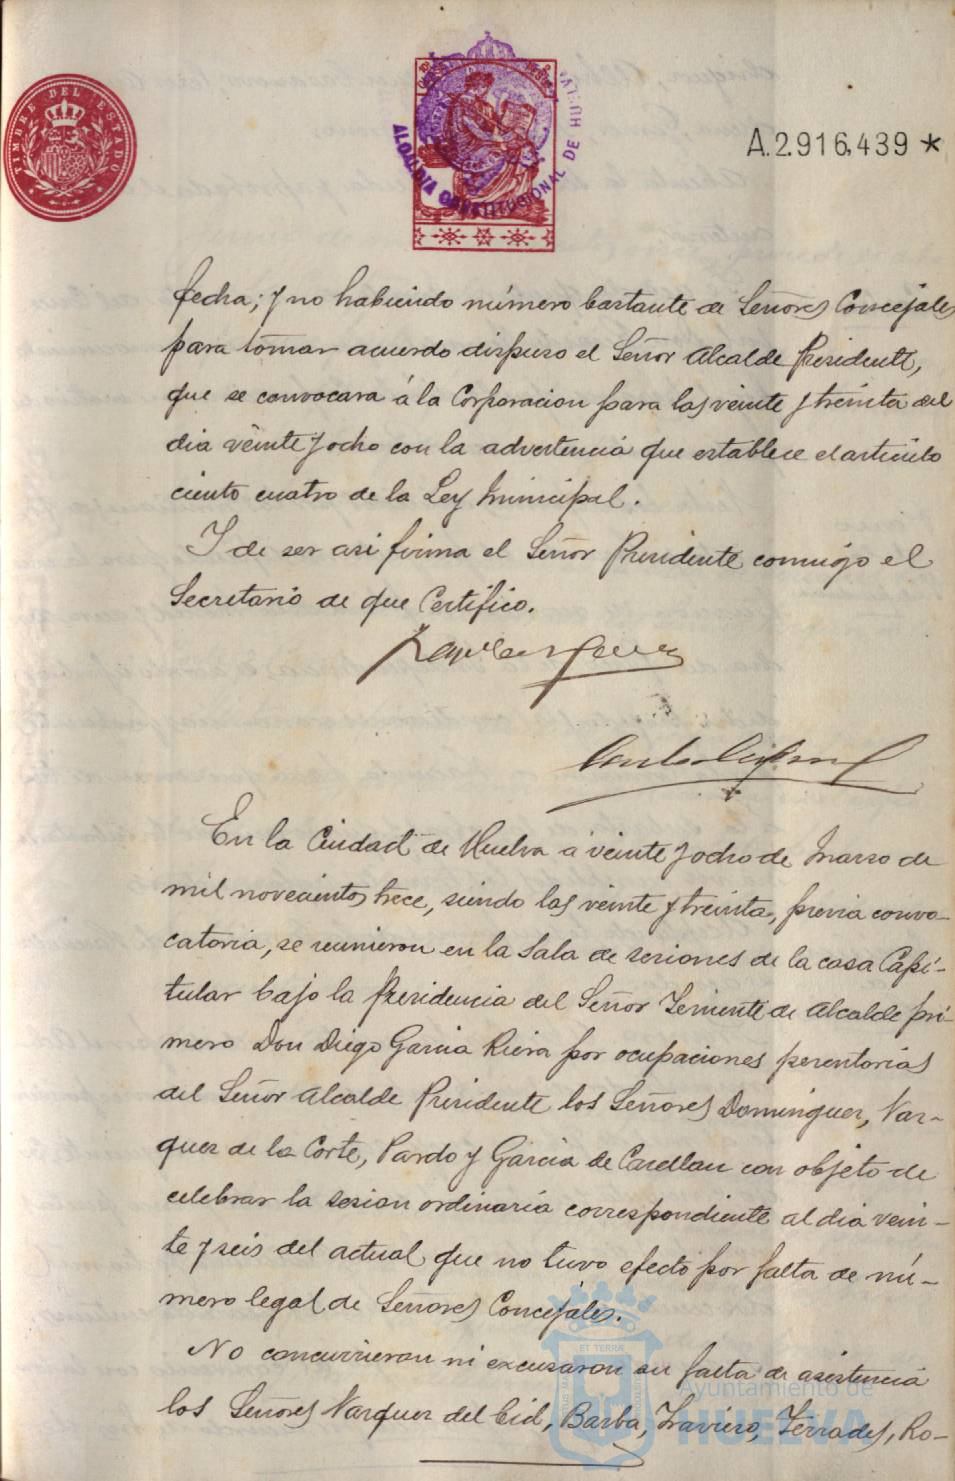 TIMBRE DEL ESTADO
ALCALDIA CONSTITUCIONAL DE HUELVA
A.2.916,439 *
fecha; y no habiendo número bastante de Señores Concejales
para tomar acuerdo dispuso el Señor Alcalde Presidente,
que se convocara á la Corporacion para las veinte y treinta del
dia veinte y ocho con la advertencia que establece el articulo
ciento cuatro de la Ley Municipal.
Y de ser asi firma el Señor Presidente conmigo el
Secretario de que Certifico.
En la Ciudad de Huelva a veinte y ocho de Marzo de
mil novecientos trece, siendo las veinte y treinta, previa convo-
catoria, se reunieron en la Sala de sesiones de la casa Capi-
tular bajo la Presidencia del Señor Teniente de Alcalde pri-
mero Don Diego Garcia Riera por ocupaciones perentorias
del Señor Alcalde Presidente los Señores Dominguez, Vaz-
quez de la Corte, Pardo y Garcia de Casellan con objeto de
celebrar la sesion ordinaria correspondiente al dia vein-
te y seis del actual que no tuvo efecto por falta de nú-
mero legal de Señores Concejales.
No concurrieron ni excusaron su falta de asistencia
los Señores Vazquez del Cid, Barba, Traviero, Terrades, Ro-
ET TERRA
Ayuntamiento de
HUELVA